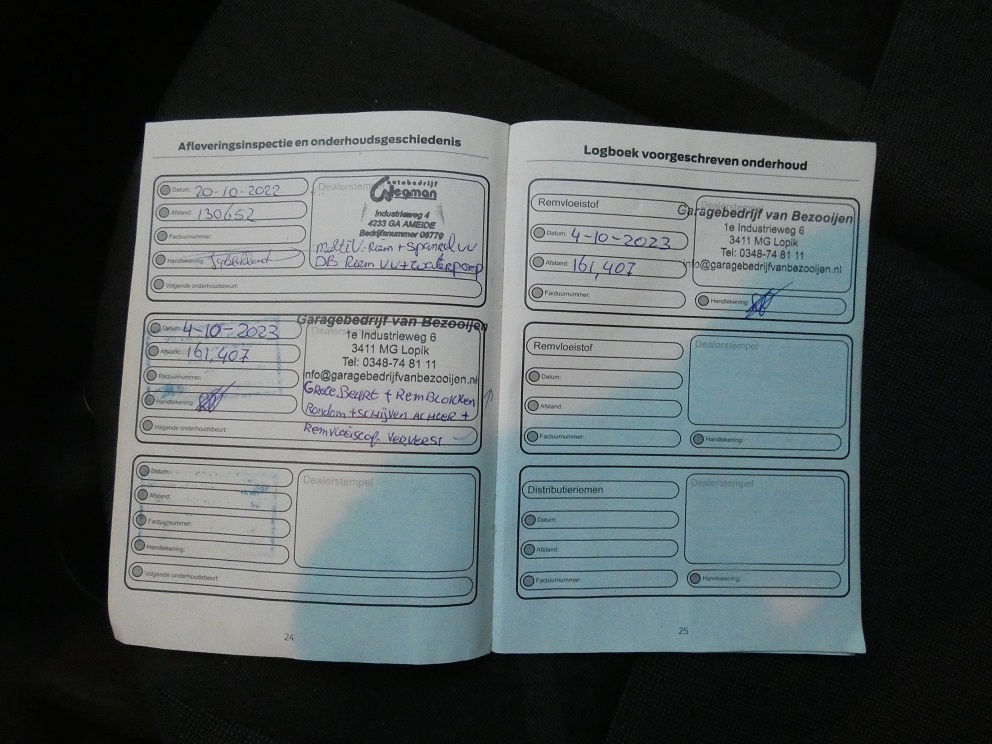 Afleveringsinspectie en onderhoudsgeschiedenis
Datum: 20-10-2022
Afstand: 130652
Factuurnummer:
Handtekening:
Volgende onderhoudsbeurt:
Dealerstem
autobedrijf
Wegman
Industrieweg 4
4233 GA AMEIDE
Bedrijfsnummer 06770
multiV-Riem + spanrol VV
DB Riem VV + waterpomp
Datum: 4-10-2023
Afstand: 161,407
Factuurnummer:
Handtekening:
Volgende onderhoudsbeurt:
Garagebedrijf van Bezooijen
1e Industrieweg 6
3411 MG Lopik
Tel: 0348-74 81 11
nfo@garagebedrijfvanbezooijen.nl
Grote Beurt + RemBlokken
Rondom + SCHijven ACHTER +
Remvloeistof ververst
Datum:
Afstand:
Factuurnummer:
Handtekening:
Volgende onderhoudsbeurt:
Dealerstempel
24
Logboek voorgeschreven onderhoud
Remvloeistof
Datum: 4-10-2023
Afstand: 161,407
Factuurnummer:
Dealerstempel
Garagebedrijf van Bezooijen
1e Industrieweg 6
3411 MG Lopik
Tel: 0348-74 81 11
info@garagebedrijfvanbezooijen.nl
Handtekening:
Remvloeistof
Datum:
Afstand:
Factuurnummer:
Dealerstempel
Handtekening:
Distributieriemen
Datum:
Afstand:
Factuurnummer:
Dealerstempel
Handtekening:
25